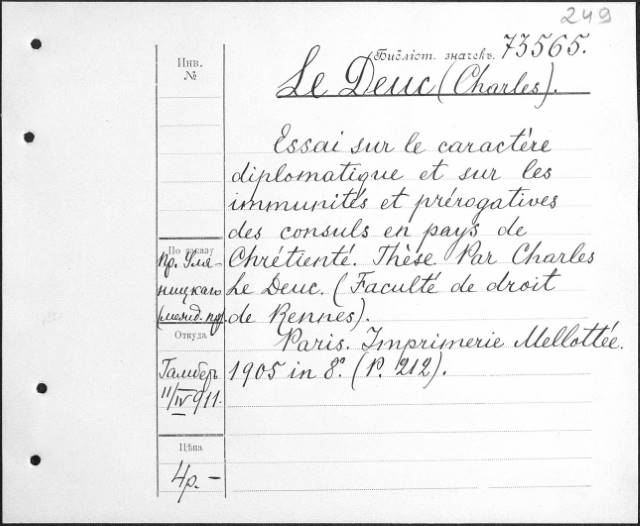 249
Библіот. значекъ. 73565.
Инв.
№
Le Deuc (Charles).
Essai sur le caractère
diplomatique et sur les
immunités et prérogatives
des consuls en pays de
Chrétienté. Thèse Par Charles
Le Deuc. (Faculté de droit
de Rennes).
Paris. Imprimerie Mellottée.
1905 in 8°. (P. 212).
По заказу
Пр. Уля-
ницкаго
(межд. пр).
Откуда
Гамберъ
11/IV 911.
Цѣна
4р. –